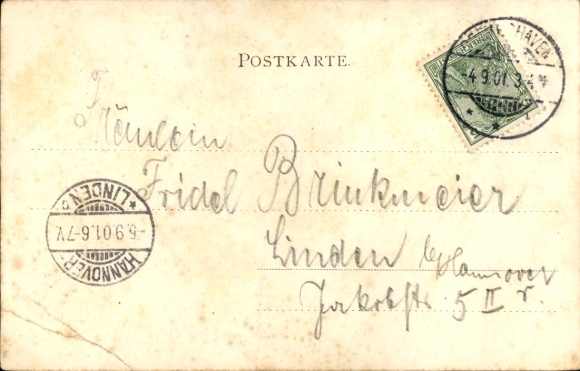 POSTKARTE.
HAVEN
-4.9.01. 3-4
Fräulein
Fridel Brinkmeier
Linden b/Hannover
Jakobstr. 5 II r.
HANNOVER-
-5.9.01.6-7V.
* LINDEN *